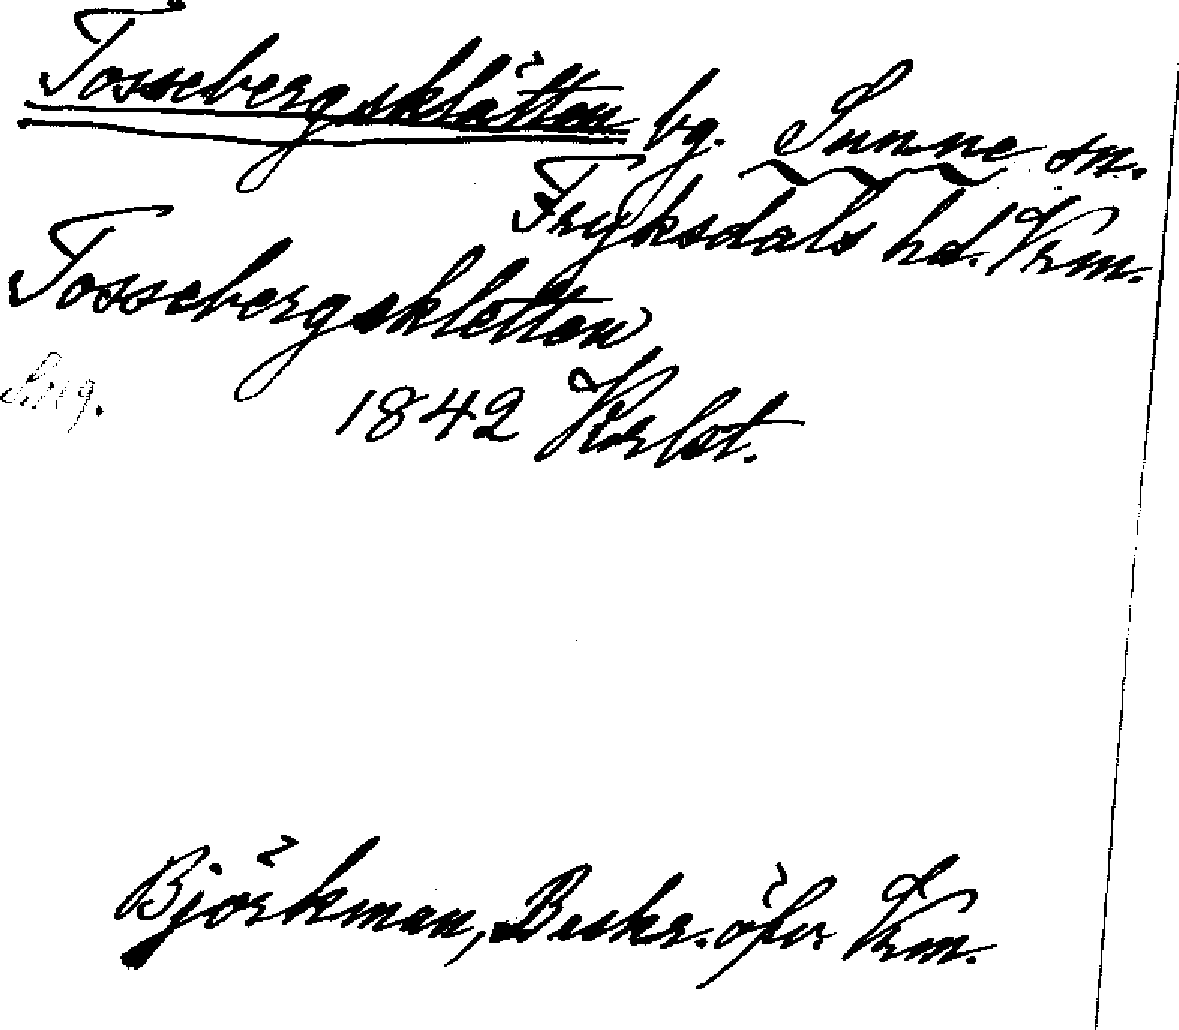 Tossebergsklätten bg. Sunne sn.
Fryksdals hd. Vrm.
Tossebergskletten
1842
Björkman, Beskr. öfver Vrm.